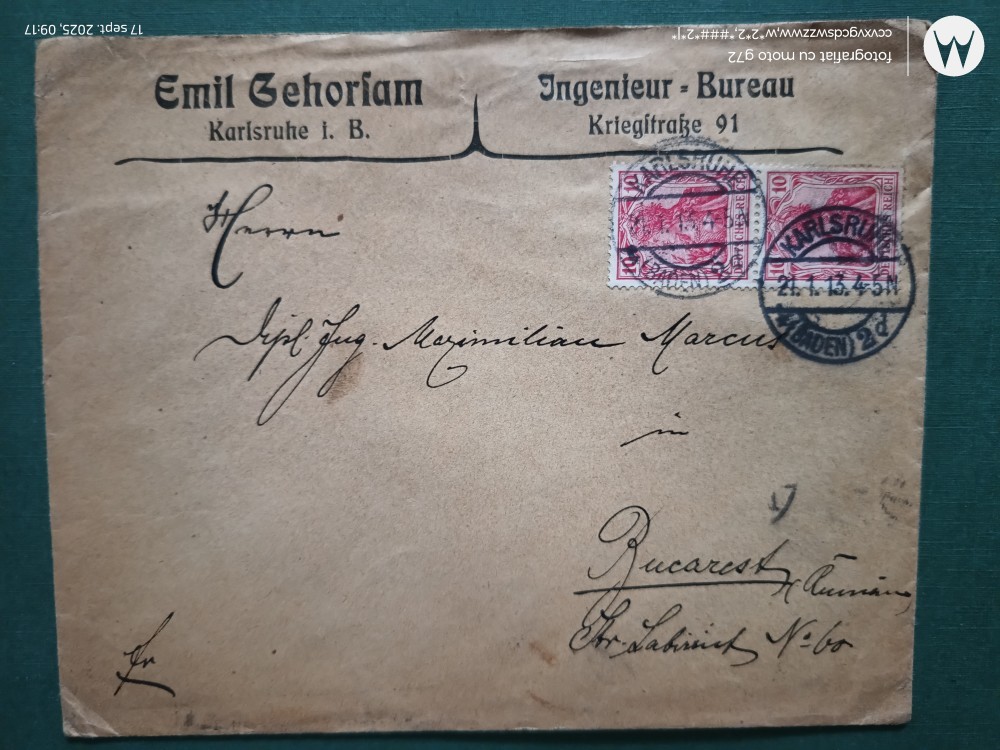 17 sept. 2025, 09:17
fotografiat cu moto g72
ccvxvgcdswzzww,w*2*2,*###*2*|
Emil Gehorsam
Karlsruhe i. B.
Ingenieur-Bureau
Kriegstraße 91
10
10
DEUTSCHES REICH
10
10
KARLSRUHE
21.1.13.4-5N
(BADEN)
KARLSRUHE
21.1.13.4-5N
(BADEN) 2d
Herrn
Dipl. Ing. Maximilian Marcus
in
Bucarest
Str. Labirint No 60